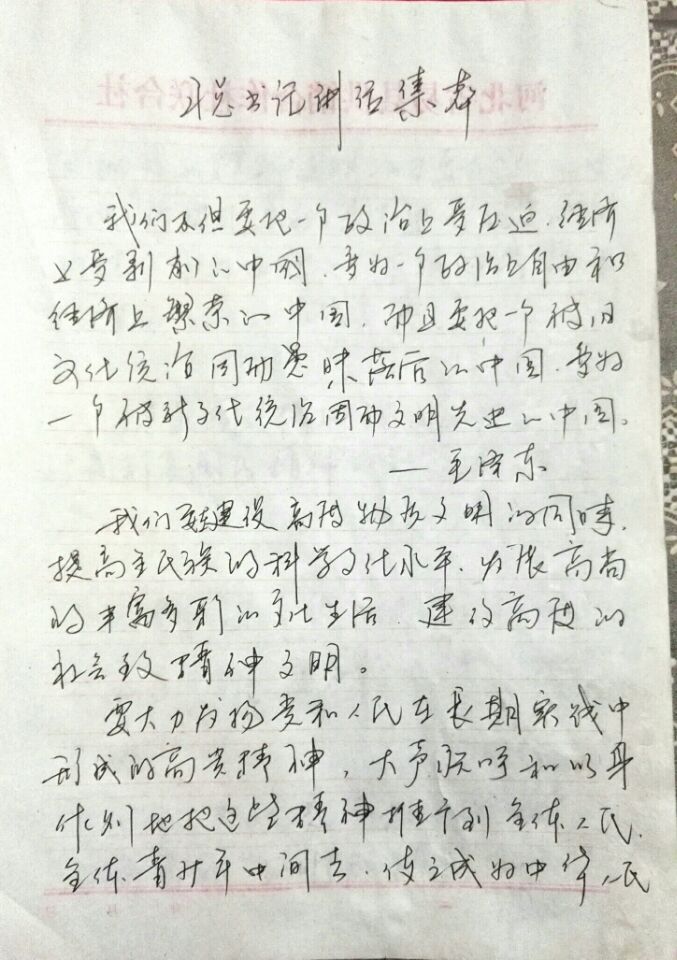 总书记讲话集萃
我们不但要把一个政治上受压迫、经济
上受剥削的中国,变为一个政治上自由和
经济上繁荣的中国,而且要把一个被旧
文化统治因而愚昧落后的中国,变为
一个被新文化统治因而文明先进的中国。
——毛泽东
我们要在建设高度物质文明的同时,
提高全民族的科学文化水平,发展高尚
的丰富多彩的文化生活,建设高度的
社会主义精神文明。
要大力发扬党和人民在长期实践中
形成的高贵精神,大声疾呼和以身
作则地把这些精神推广到全体人民、
全体青少年中间去,使之成为中华人民